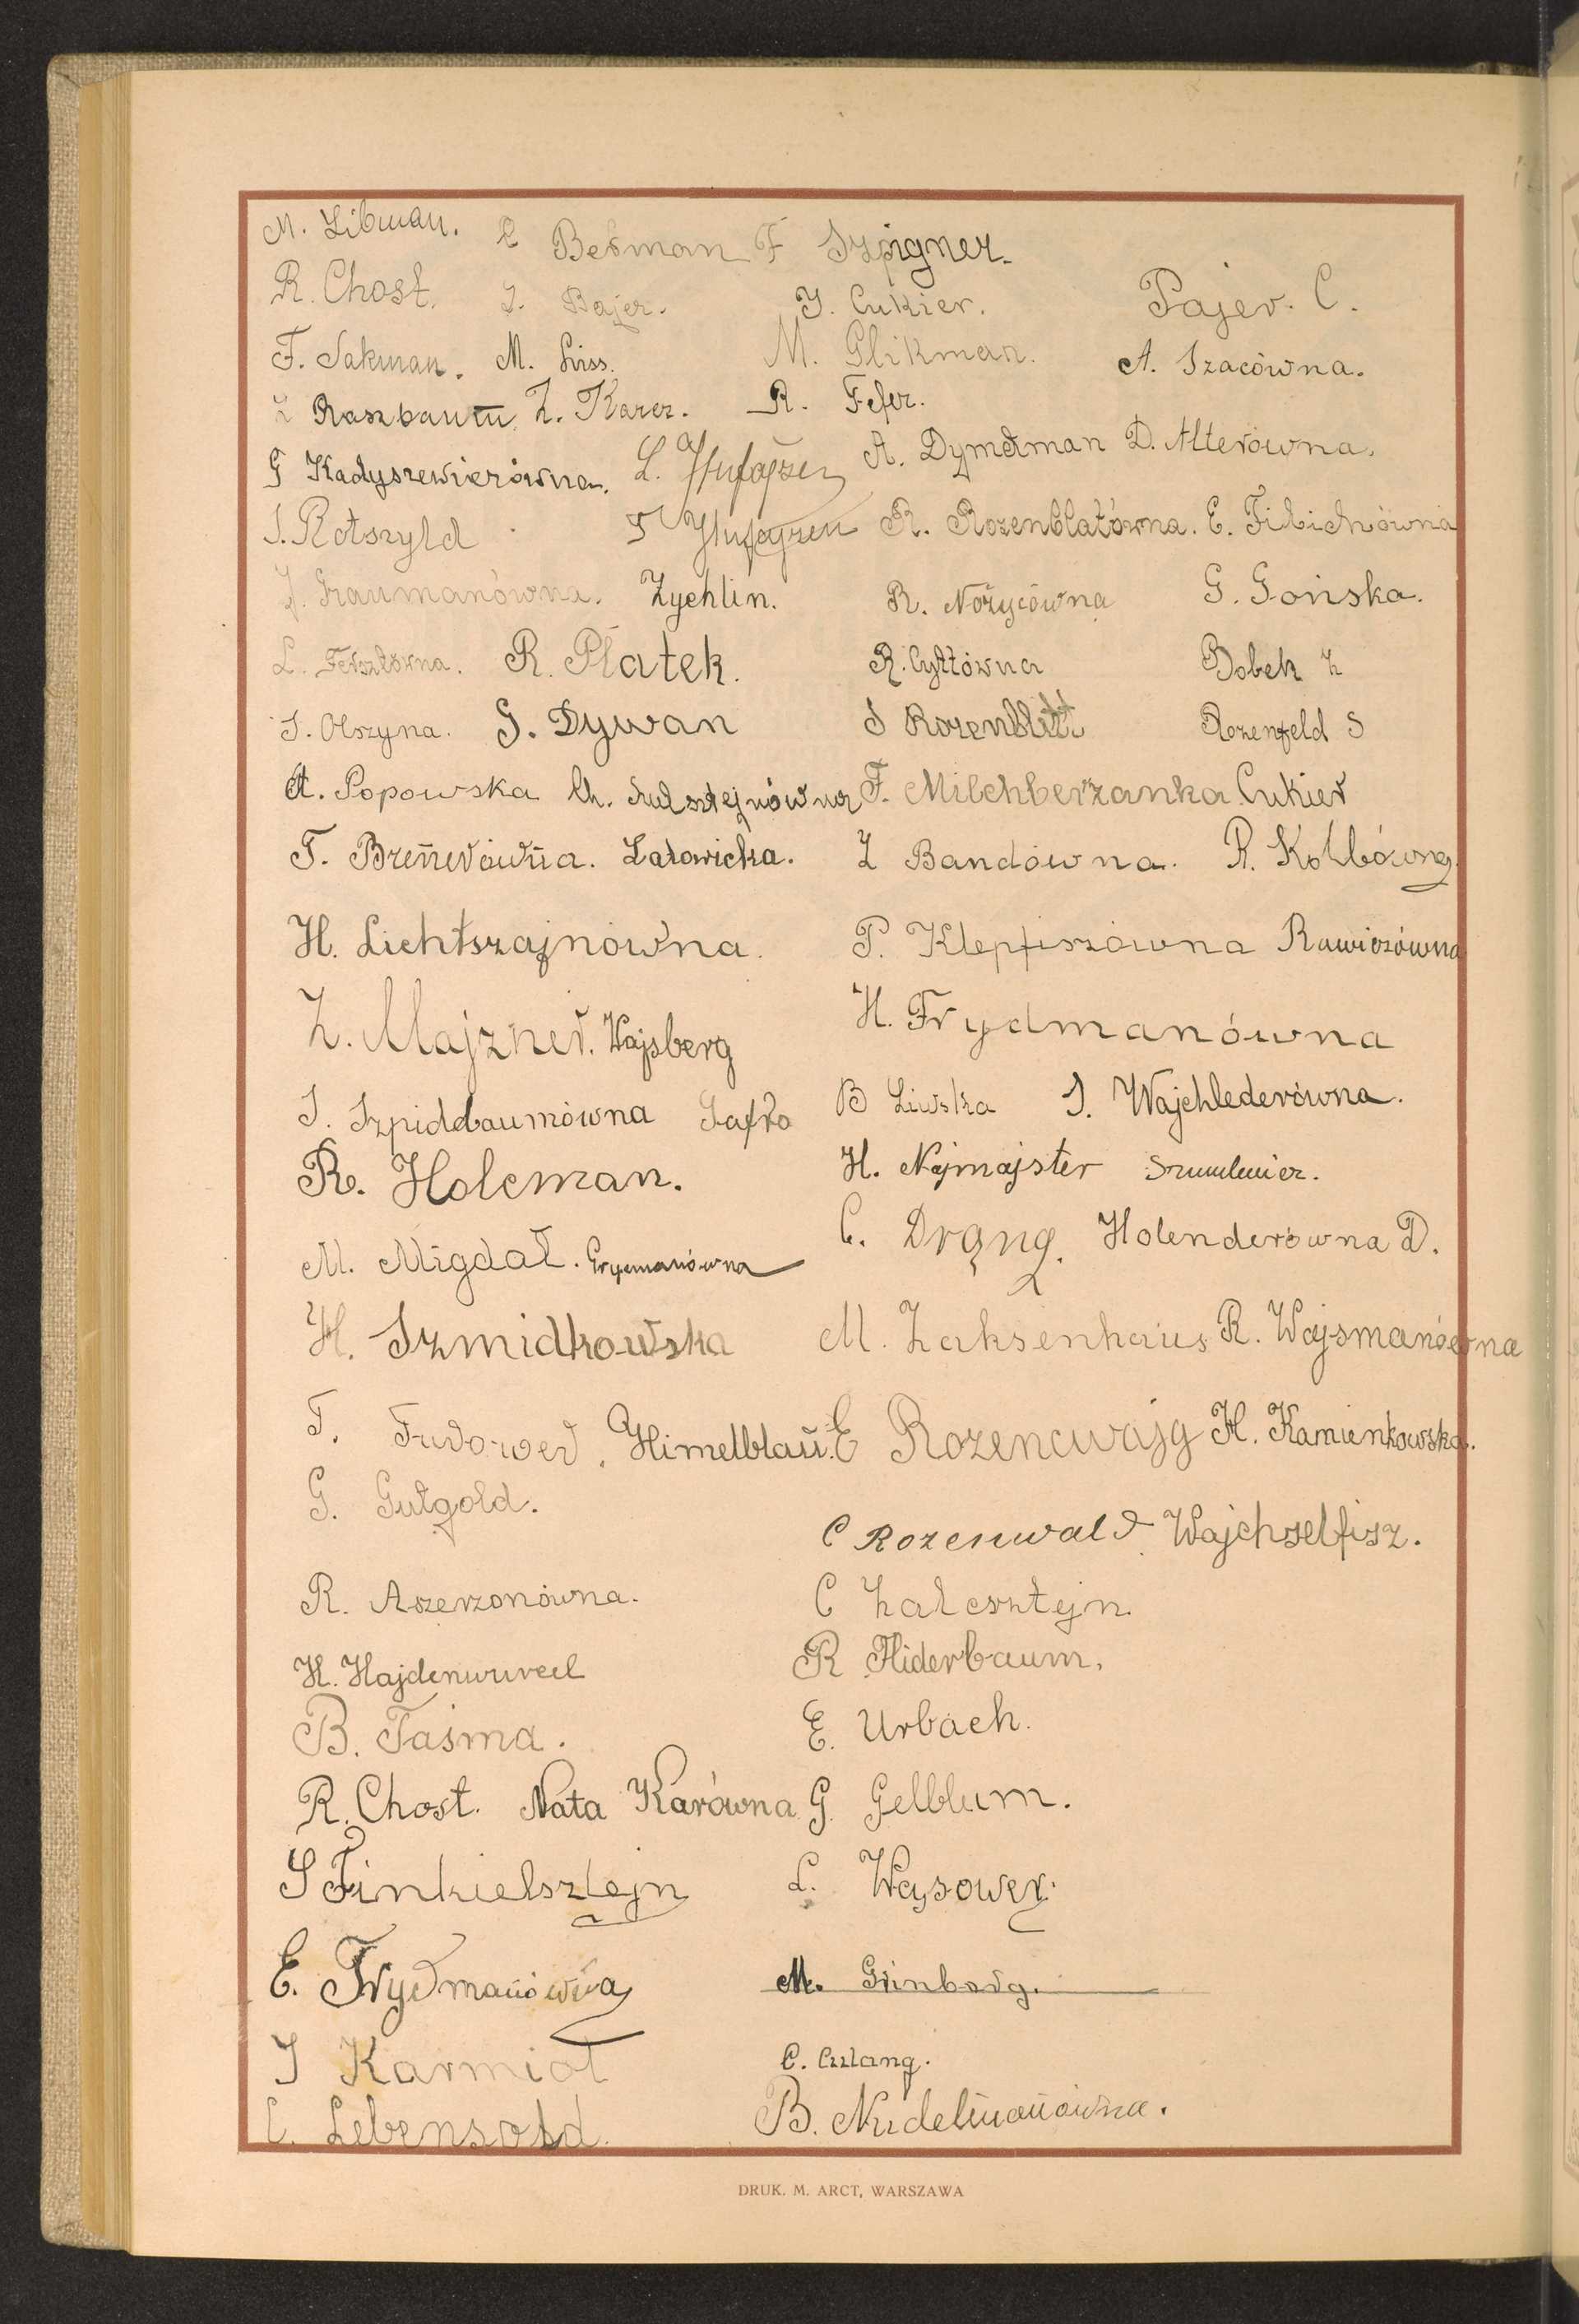 M. Libman. C Berman F Szpigner.
R. Chost. I. Bajer. J. Cukier. Pajer. C.
F. Sakman. M. Liss. M. Glikman. A. Szacówna.
Z Raszbaum Z. Karer. R. Fefer.
G Kadyszewiczówna. L. A. Dymetman D. Alterówna.
S. Rotszyld R. Rozenblatówna. E. Fibichówna
J. Graumanówna. Zychlin. R. Nożycówna G. Gońska.
L. Fersztówna. R. Płatek. R. Cyltówna Bobek Z
S. Olszyna. G. Dywan S Rozenblitt Rozenfeld S
A. Popowska Ch. F. Milchberżanka Cukier
T. Brenerówna. Latowicka. Z Bandówna. R. Kolbówna.
H. Lichtszajnówna. P. Klepfiszówna Rawiczówna
Z. Majzner. Wajsberg H. Frydmanówna
S. Szpidbaumówna Safro B Liwska S. Wajchlederówna.
R. Holcman. H. Najmajster Szmulewicz.
M. Migdał. Grycmanówna C. Drąng. Holenderówna D.
H. Szmidkowska M. Zaksenhaus R. Wajsmanówna
T. Futower. Himelblau. E Rozencwajg H. Kamienkowska.
G. Gutgold. C Rozenwald Wajchselfisz.
R. Aszerzonówna. C Załcsztejn.
H. Hajdenwurcel R Fliderbaum.
B. Taśma. E. Urbach.
R. Chost. Nata Karówna G. Gelblum.
S Finkielsztejn L. Wąsower.
E. Frydmanówna M. Grinberg.
J Karmioł C. Culang.
C. Lebensold. B. Nudelmanówna.
DRUK. M. ARCT, WARSZAWA